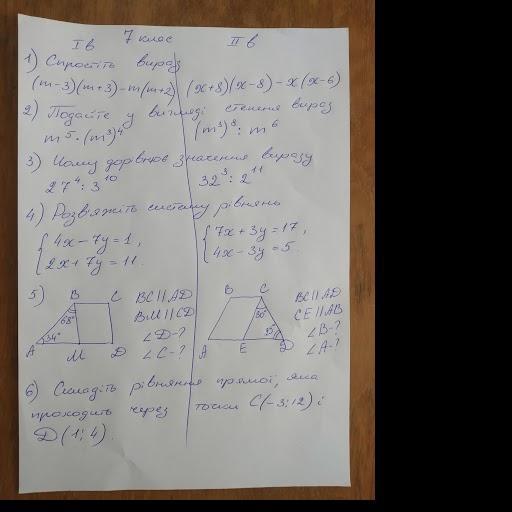 7 клас
I в II в
1) Спростіть вираз
(m-3)(m+3)-m(m+2) (x+8)(x-8)-x(x-6)
2) Подайте у вигляді степеня вираз
m⁵·(m³)⁴ (m³)⁸:m⁶
3) Чому дорівнює значення виразу
27⁴:3¹⁰ 32³:2¹¹
4) Розв'яжіть систему рівнянь
4x-7y=1, 7x+3y=17,
2x+7y=11. 4x-3y=5.
5) B C BC||AD B C BC||AD
68° BM||CD 30° CE||AB
34° ∠D-? ∠B-?
A M D ∠C-? A E D ∠A-?
6) Складіть рівняння прямої, яка
проходить через точки C(-3;12) і
D(1;4).